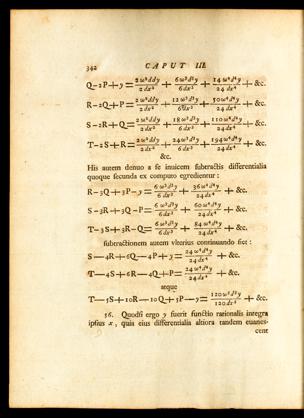 342 CAPUT III.
Q−2P+y = 2ω²ddy/2dx² + 6ω³d³y/6dx³ + 14ω⁴d⁴y/24dx⁴ + &c.
R−2Q+P = 2ω²ddy/2dx² + 12ω³d³y/6dx³ + 50ω⁴d⁴y/24dx⁴ + &c.
S−2R+Q = 2ω²ddy/2dx² + 18ω³d³y/6dx³ + 110ω⁴d⁴y/24dx⁴ + &c.
T−2S+R = 2ω²ddy/2dx² + 24ω³d³y/6dx³ + 194ω⁴d⁴y/24dx⁴ + &c.
&c.
His autem denuo a se inuicem subtractis differentialia
quoque secunda ex computo egredientur:
R−3Q+3P−y = 6ω³d³y/6dx³ + 36ω⁴d⁴y/24dx⁴ + &c.
S−3R+3Q−P = 6ω³d³y/6dx³ + 60ω⁴d⁴y/24dx⁴ + &c.
T−3S+3R−Q = 6ω³d³y/6dx³ + 84ω⁴d⁴y/24dx⁴ + &c.
subtractionem autem vlterius continuando fiet:
S−4R+6Q−4P+y = 24ω⁴d⁴y/24dx⁴ + &c.
T−4S+6R−4Q+P = 24ω⁴d⁴y/24dx⁴ + &c.
atque
T−5S+10R−10Q+5P−y = 120ω⁵d⁵y/120dx⁵ + &c.
56. Quodsi ergo y fuerit functio rationalis integra
ipsius x, quia eius differentialia altiora tandem euanes-
cent